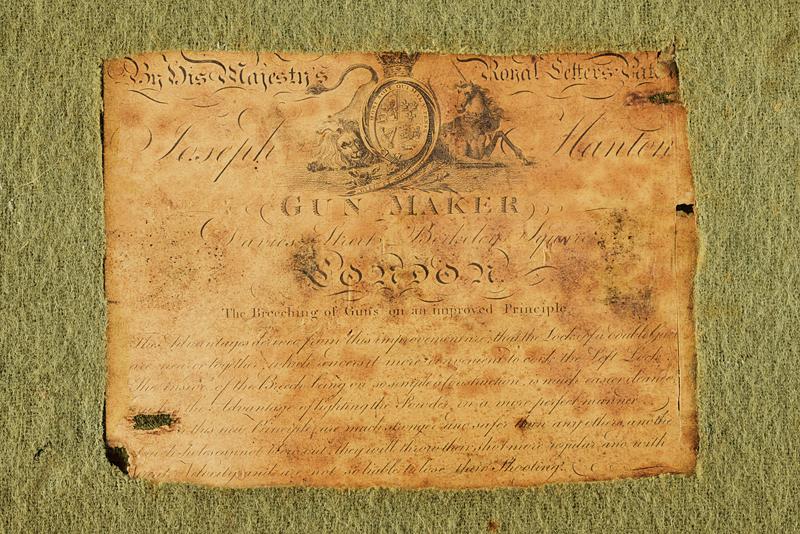 By His Majesty's Royal Letters Pat
Joseph Manton
GUN MAKER
Davies Street Berkeley Square
LONDON
The Breeching of Guns on an improved Principle
The Advantages derive from this improvement are, that the Locks of a double Gun
are nearer together, which renders it more convenient to cock the Left Lock
The inside of the Breech being on so simple a construction is much easier cleaned
the Advantage of lighting the Powder in a more perfect manner
this Principle are much stronger and safer than any others, and the
holes cannot they will throw their shot more regular and with
not so liable to lose their Shooting